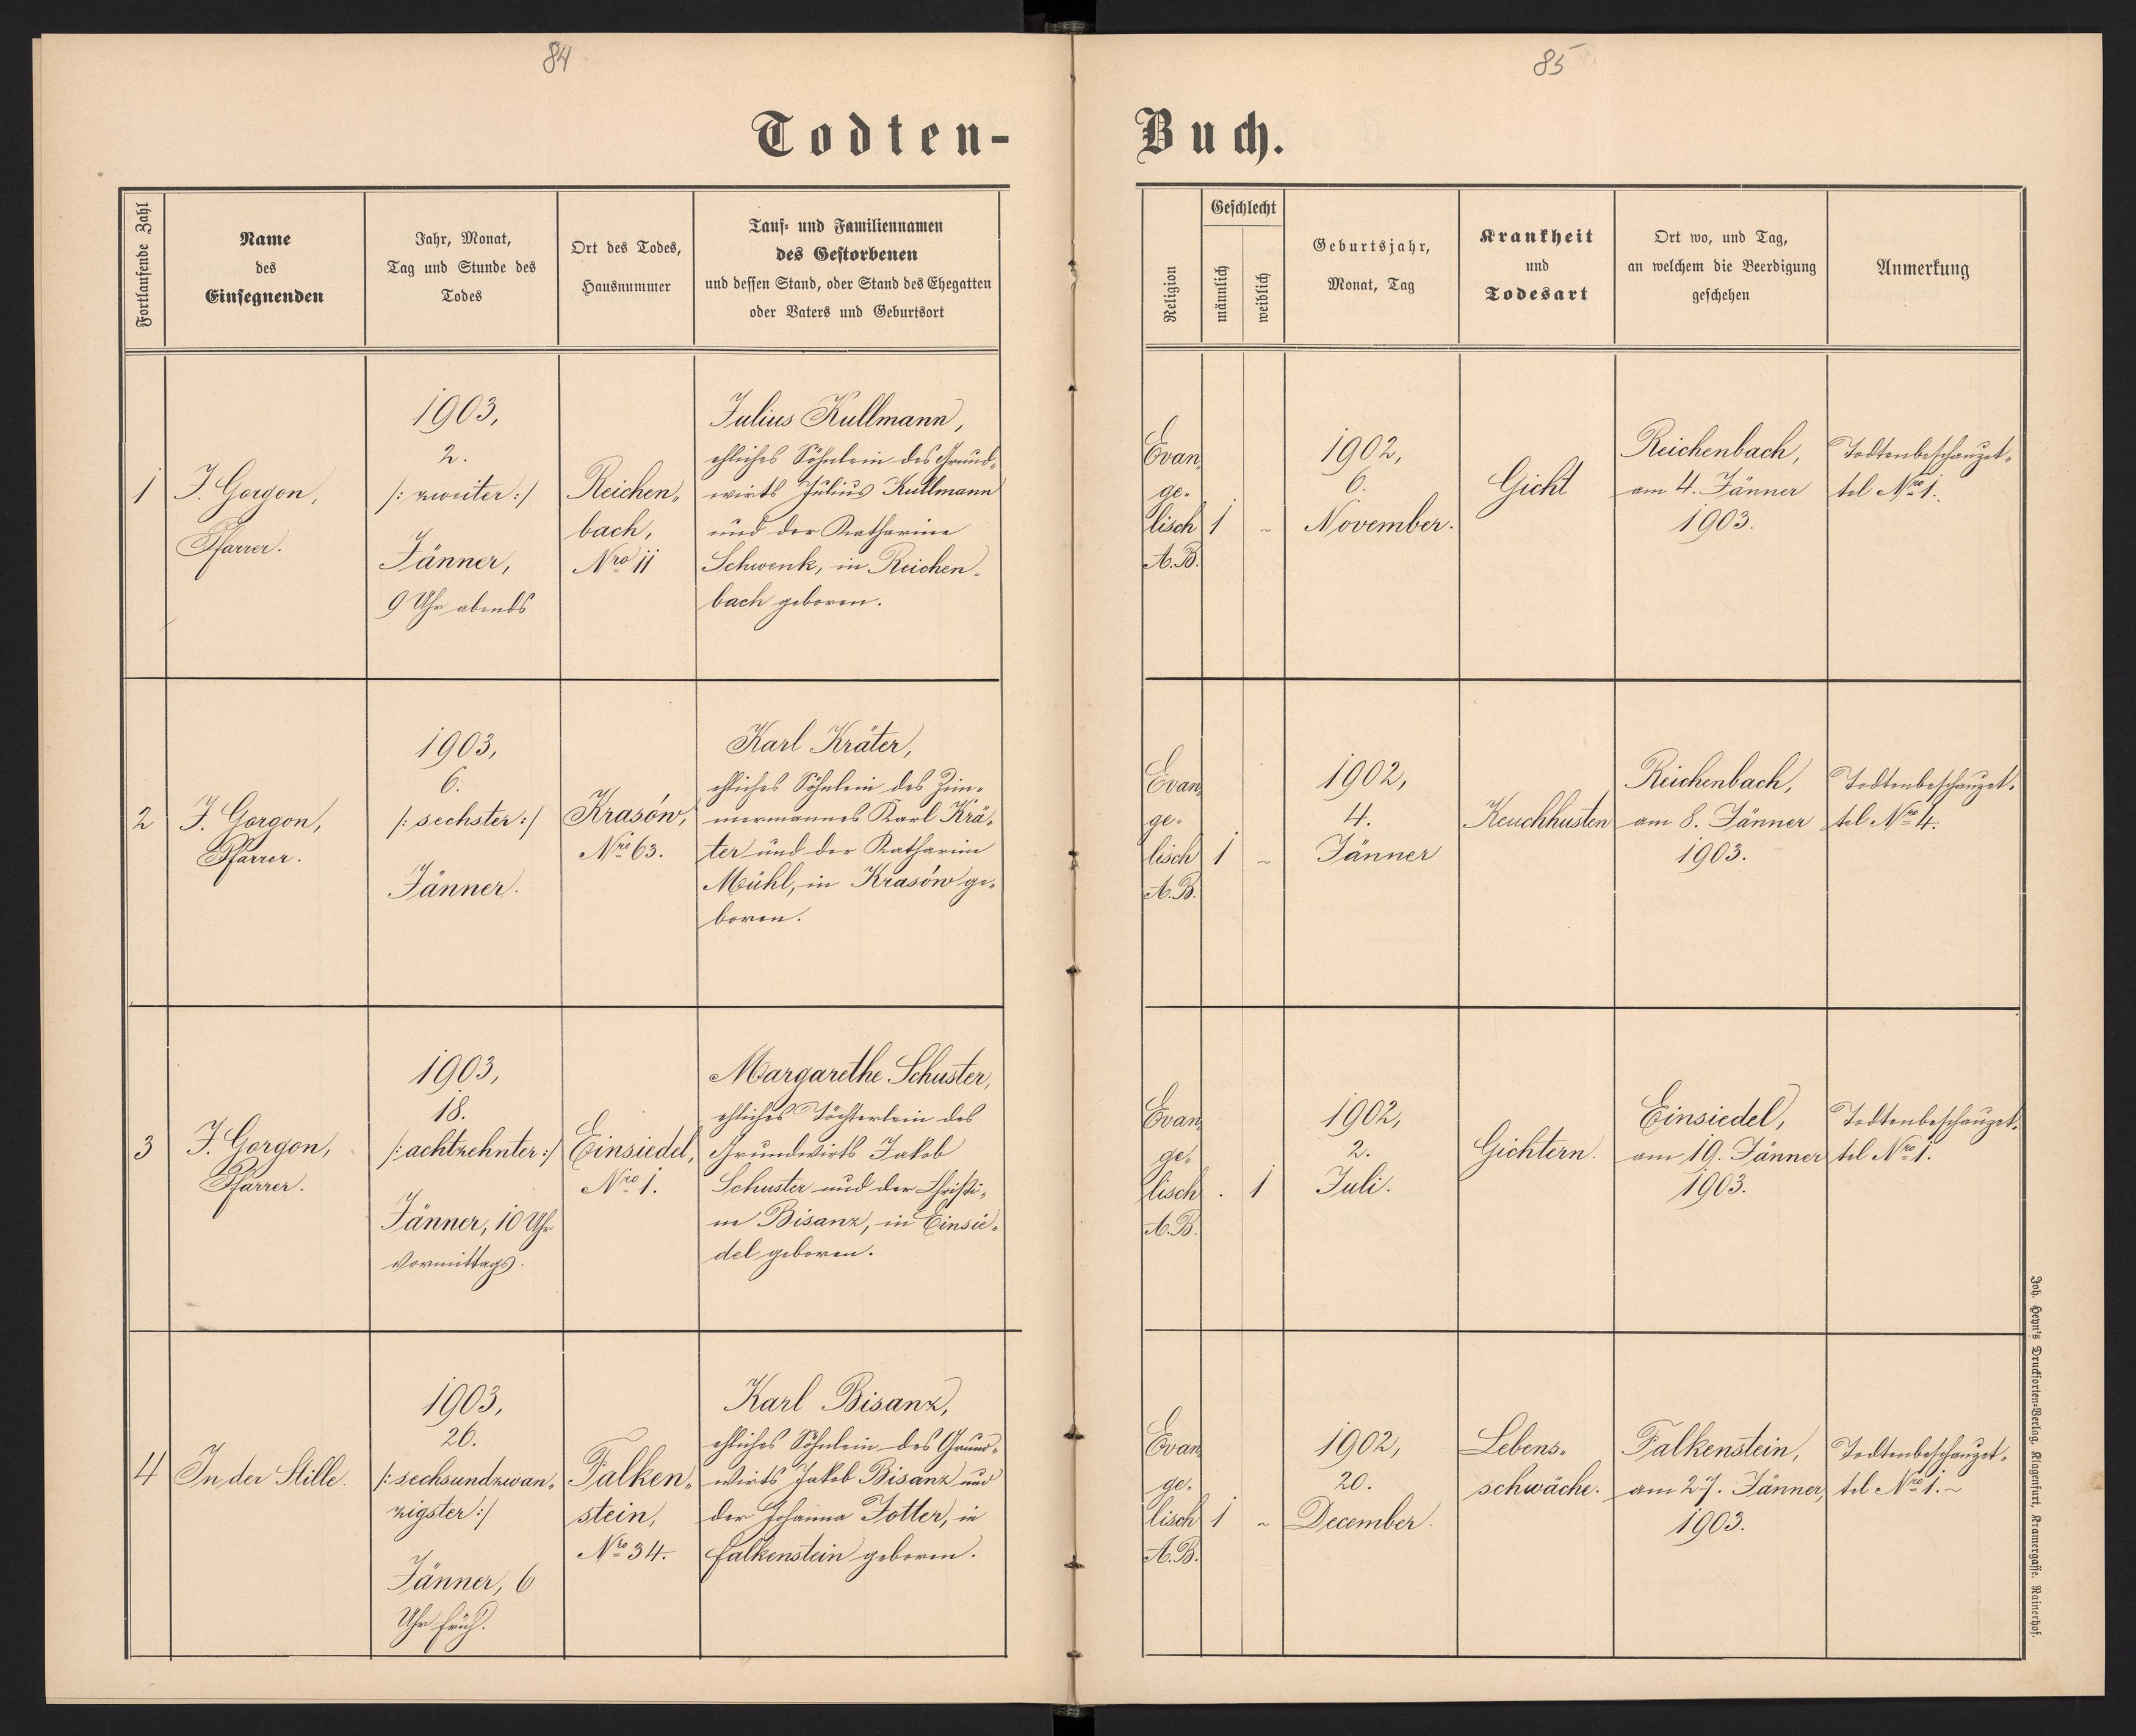 84
Todten-
Fortlaufende Zahl
Name
des
Einsegnenden
Jahr, Monat,
Tag und Stunde des
Todes
Ort des Todes,
Hausnummer
Tauf- und Familiennamen
des Gestorbenen
und dessen Stand, oder Stand des Ehegatten
oder Vaters und Geburtsort
1
J. Gorgon,
Pfarrer.
1903,
2.
/: zweiter :/
Jänner,
9 Uhr abends
Reichen-
bach,
Nro 11
Julius Kullmann,
ehliches Söhnlein des Grund-
wirts Julius Kullmann
und der Katharine
Schwenk, in Reichen-
bach geboren.
2
J. Gorgon,
Pfarrer.
1903,
6.
/: sechster :/
Jänner.
Krasów,
Nro 63.
Karl Kräter,
ehliches Söhnlein des Zim-
mermannes Karl Krä-
ter und der Katharine
Mühl, in Krasów ge-
boren.
3
J. Gorgon,
Pfarrer.
1903,
18.
/: achtzehnter :/
Jänner, 10 Uhr
Vormittags.
Einsiedel,
Nro 1.
Margarethe Schuster,
ehliches Töchterlein des
Grundwirts Jakob
Schuster und der Christi-
ne Bisanz, in Einsie-
del geboren.
4
In der Stille.
1903,
26.
/: sechsundzwan-
zigster :/
Jänner, 6
Uhr früh.
Falken-
stein,
Nro 34.
Karl Bisanz,
ehliches Söhnlein des Grund-
wirts Jakob Bisanz und
der Johanna Jotter, in
Falkenstein geboren.
85
Buch.
Religion
Geschlecht
männlich
weiblich
Geburtsjahr,
Monat, Tag
Krankheit
und
Todesart
Ort wo, und Tag,
an welchem die Beerdigung
geschehen
Anmerkung
Evan-
ge-
lisch
A.B.
1
~
1902,
6.
November.
Gicht
Reichenbach,
am 4. Jänner
1903.
Todtenbeschauzet-
tel Nro 1.
Evan-
ge-
lisch
A.B.
1
~
1902,
4.
Jänner
Keuchhusten
Reichenbach,
am 8. Jänner
1903.
Todtenbeschauzet-
tel Nro 4.
Evan-
ge-
lisch
A.B.
.
1
1902,
2.
Juli.
Gichtern.
Einsiedel,
am 19. Jänner
1903.
Todtenbeschauzet-
tel Nro 1.
Evan-
ge-
lisch
A.B.
1
~
1902,
20.
December.
Lebens-
schwäche.
Falkenstein,
am 27. Jänner,
1903.
Todtenbeschauzet-
tel Nro 1. ~
Joh. Heyn's Drucksorten-Verlag, Klagenfurt, Kramergasse, Rainerhof.